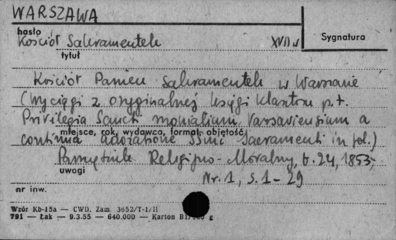 WARSZAWA
hasło
Kościół Sakramentek XVII w Sygnatura
tytuł
Kościół Panien Sakramentek w Warszawie
(Wyciągi z oryginalnej księgi klasztoru p.t.
Privilegia Sancti monialium Varsaviensium a
miejsce, rok, wydawca, format, objętość
continua adoratione SSmi Sacramenti in fol.)
Pamiętnik Religijno-Moralny, t. 24, 1853,
uwagi
Nr. 1, s. 1-29
nr inw.
Wzór Kb-15a — CWD. Zam. 3652/T-1/II
791 — Łak — 9.3.55 — 640.000 — Karton B1/ g